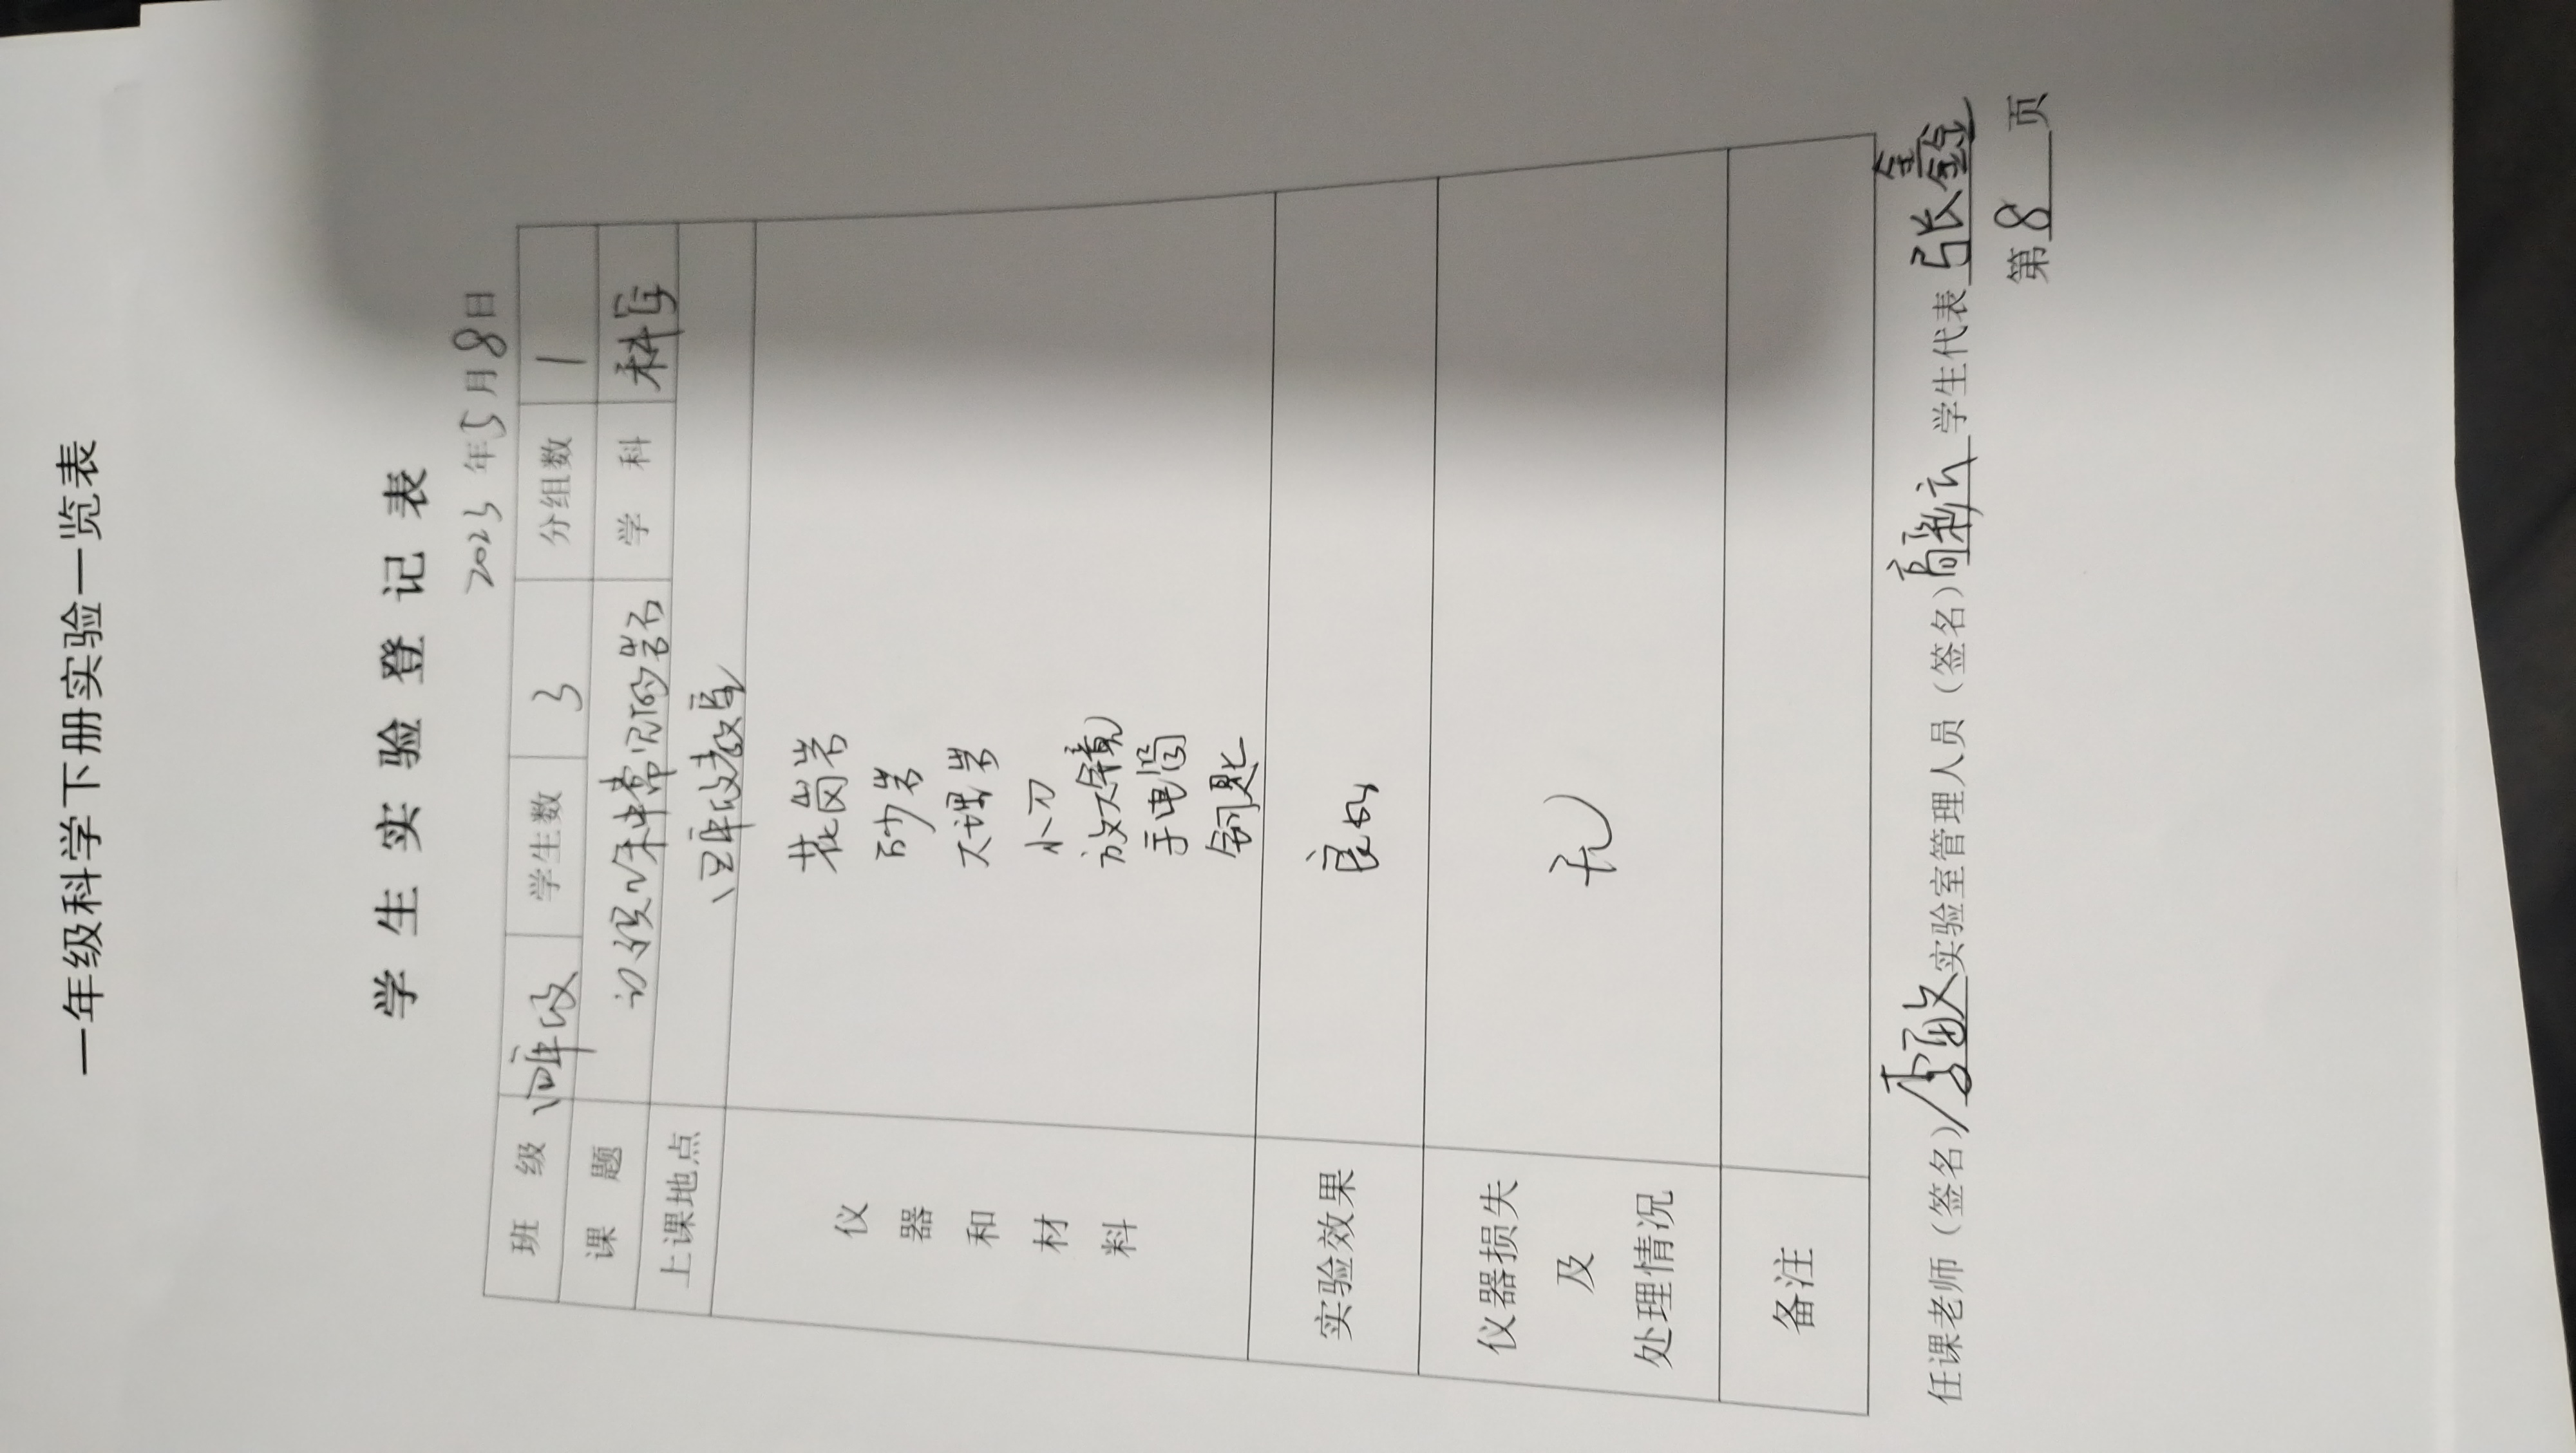 一年级科学下册实验一览表
学生实验登记表
2023年5月8日
班级 四年级 学生数 3 分组数 1
课题 认识几种常见的岩石 学科 科学
上课地点 四年级教室
仪器和材料
花岗岩
砂岩
大理岩
小刀
放大镜
手电筒
钥匙
实验效果 良好
仪器损失及处理情况 无
备注
任课老师（签名） 实验室管理人员（签名） 学生代表 张鑫鑫
第8页